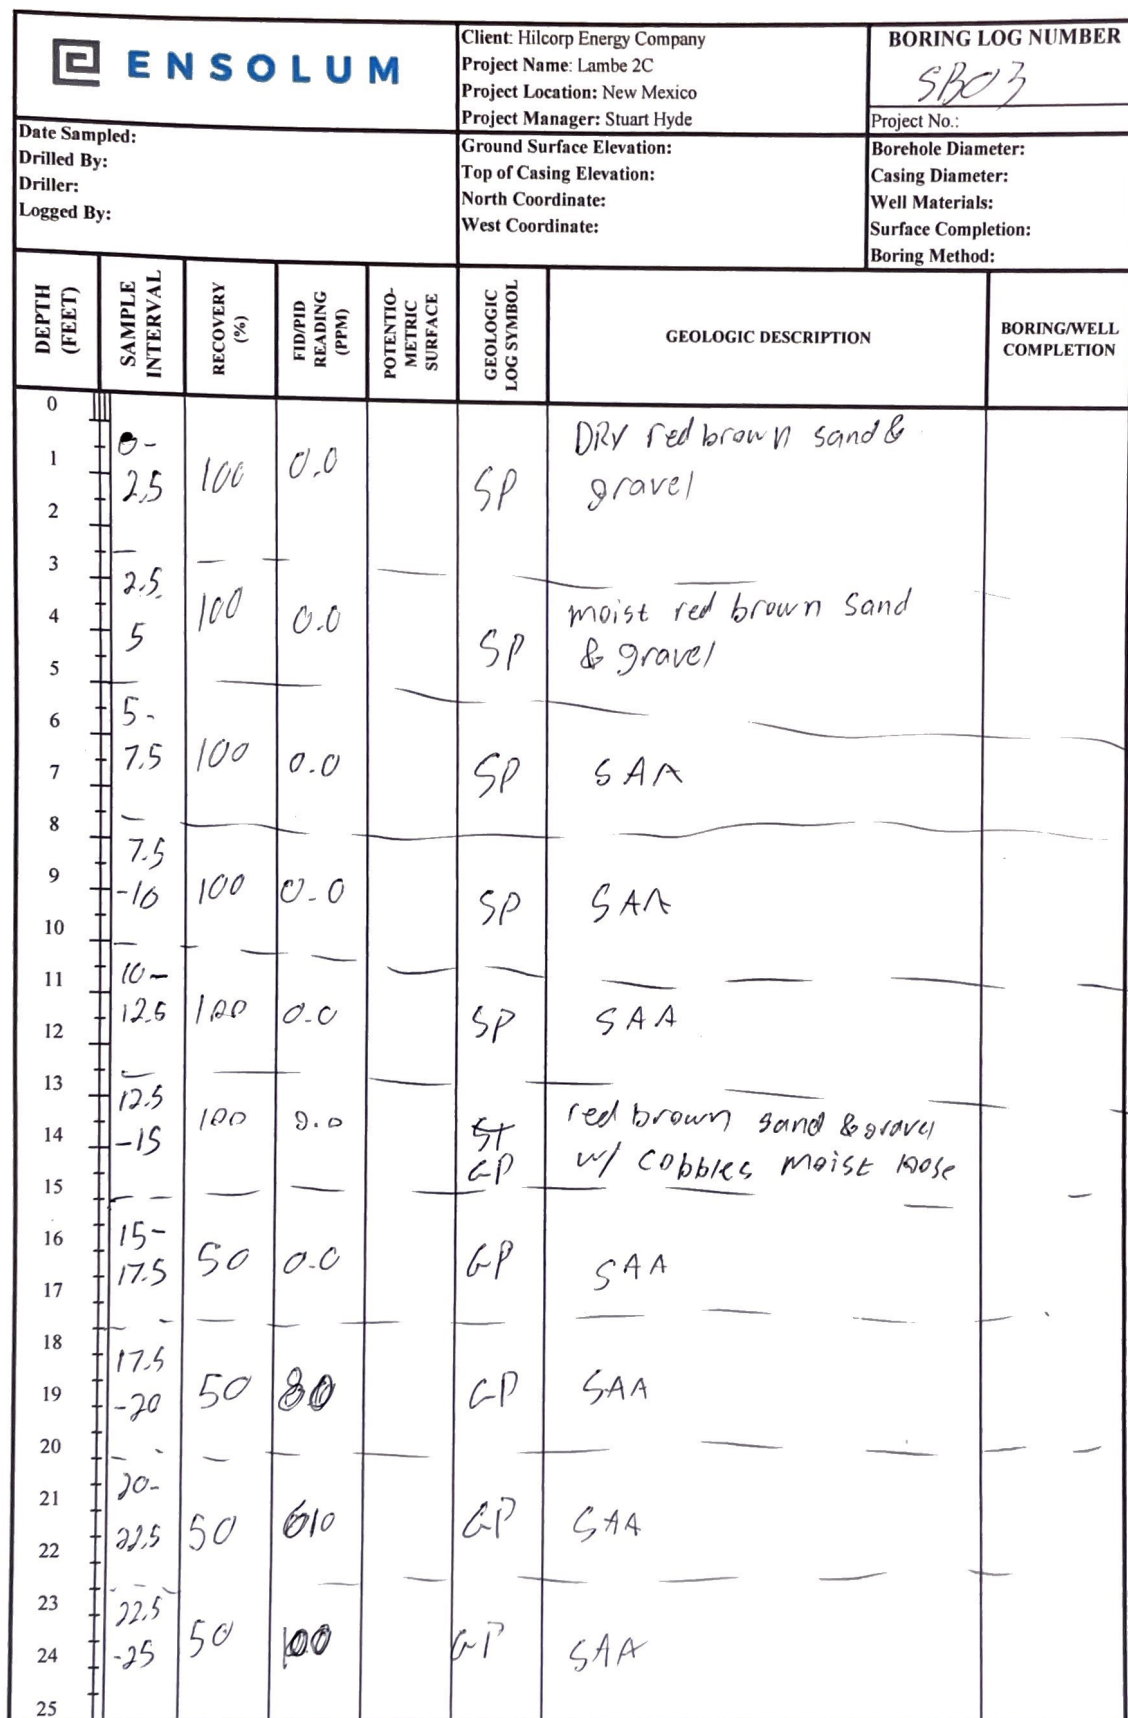 ENSOLUM
Client: Hilcorp Energy Company
Project Name: Lambe 2C
Project Location: New Mexico
Project Manager: Stuart Hyde
BORING LOG NUMBER
SB03
Project No.:
Date Sampled:
Drilled By:
Driller:
Logged By:
Ground Surface Elevation:
Top of Casing Elevation:
North Coordinate:
West Coordinate:
Borehole Diameter:
Casing Diameter:
Well Materials:
Surface Completion:
Boring Method:
DEPTH (FEET)
SAMPLE INTERVAL
RECOVERY (%)
FID/PID READING (PPM)
POTENTIO-METRIC SURFACE
GEOLOGIC LOG SYMBOL
GEOLOGIC DESCRIPTION
BORING/WELL COMPLETION
0
1
2
0-
2.5
100
0.0
SP
DRY red brown sand &
gravel
3
4
5
2.5
5
100
0.0
SP
moist red brown sand
& gravel
6
7
5-
7.5
100
0.0
SP
SAA
8
9
10
7.5
-10
100
0.0
SP
SAA
11
12
10-
12.5
100
0.0
SP
SAA
13
14
15
12.5
-15
100
0.0
GP
red brown sand & gravel
w/ cobbles moist loose
16
17
15-
17.5
50
0.0
GP
SAA
18
19
20
17.5
-20
50
GP
SAA
21
22
20-
22.5
50
GP
SAA
23
24
25
22.5
-25
50
GP
SAA